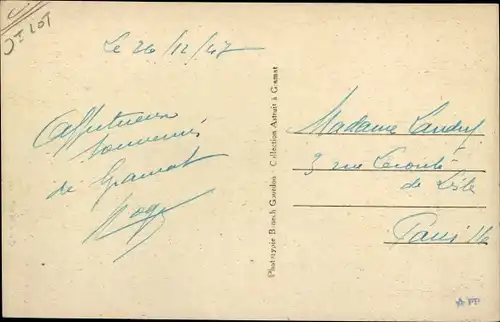 D I LOT
Le 26/12/47
Affectueux
souvenirs
de Gramat
Phototypie Bloech Gourdon - Collection Astruit à Gramat
Madame Landry
3 rue Leconte
de Lisle
Paris 16
PP